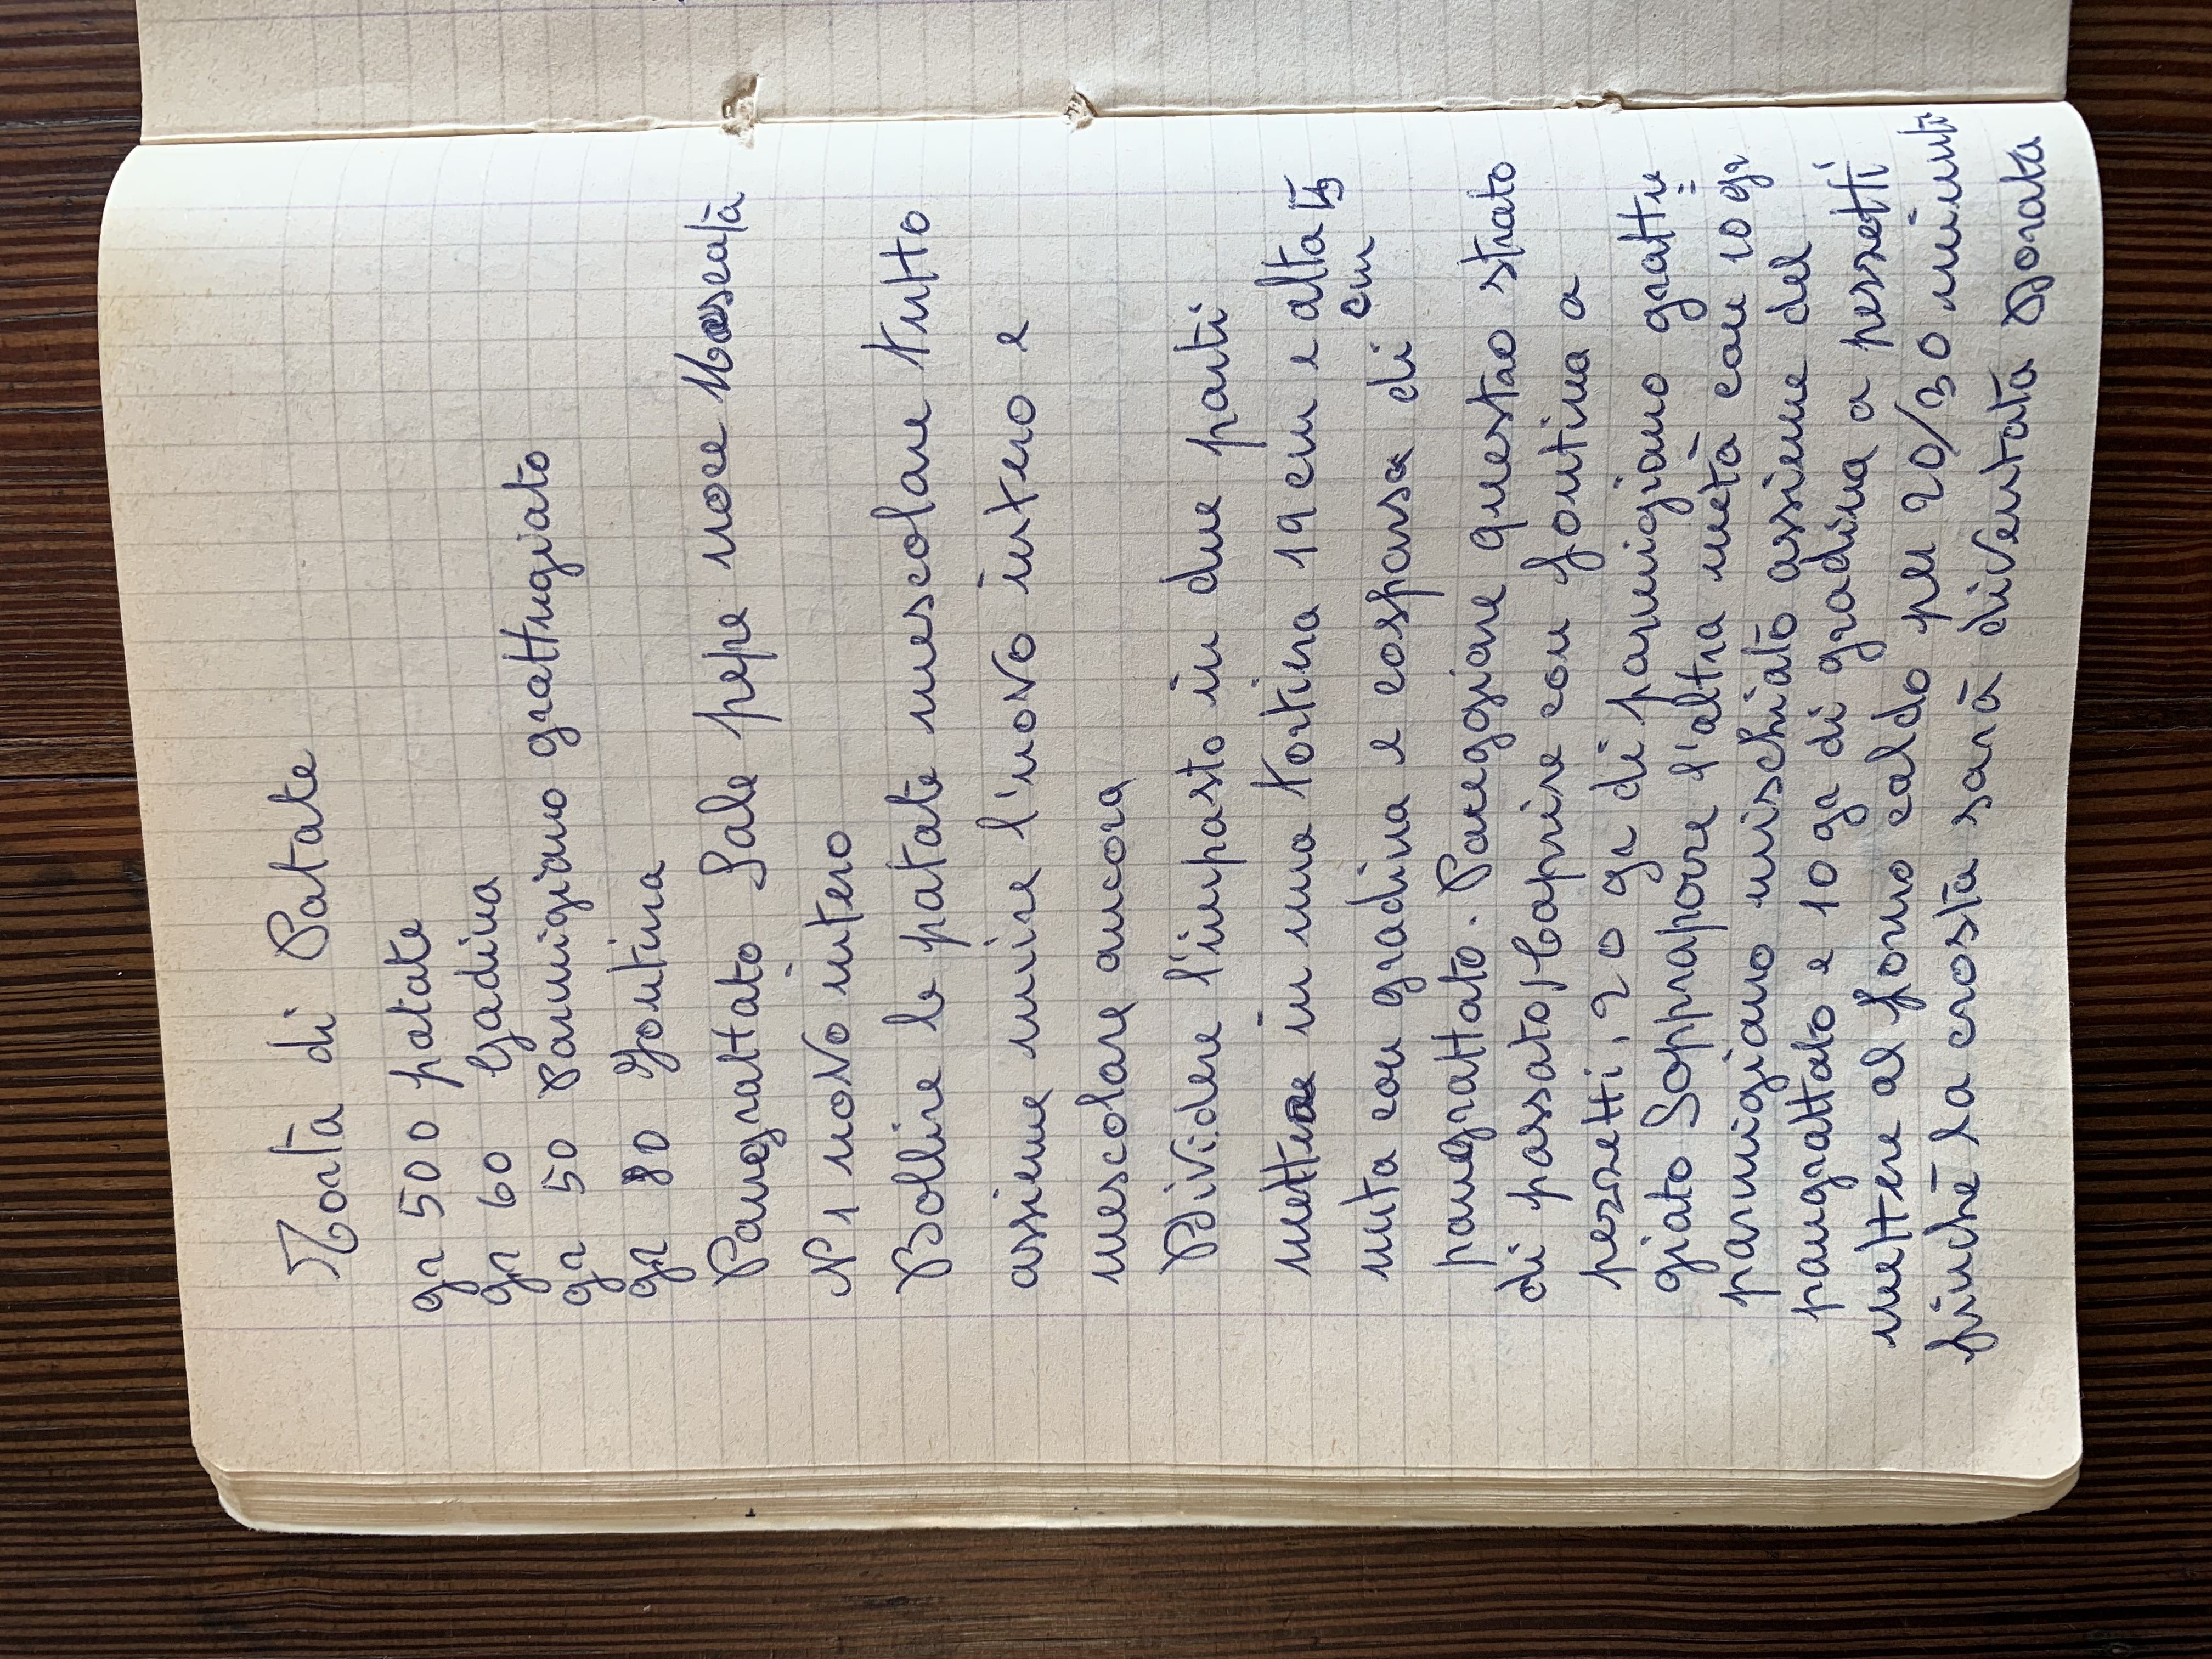 Torta di Patate
gr 500 patate
gr 60 Gadina
gr 50 Parmigiano grattugiato
gr 80 Fontina
Pangrattato Sale pepe noce Moscata
N 1 uovo intero
Bollire le patate mescolare tutto
assieme unire l'uovo intero e
mescolare ancora
Dividere l'impasto in due parti
mettere in una tortiera 19 cm e alta
cm
unta con gradina e cosparsa di
pangrattato. Pareggiare questro strato
di passato, Coprire con fontina a
pezzetti, 20 gr di parmigiano grattu
giato Soppraporre l'altra metà con 10 gr
parmigiano mischiato assieme del
pangrattato e 10 gr di gradina a pezzetti
mettere al forno caldo per 20/30 minuti
finchè la crosta sarà diventata Dorata